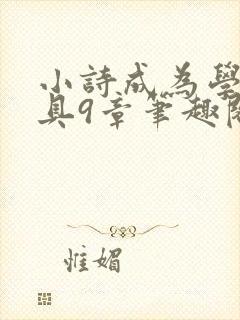 小詩成為學
具9章筆趣閣
惟媚